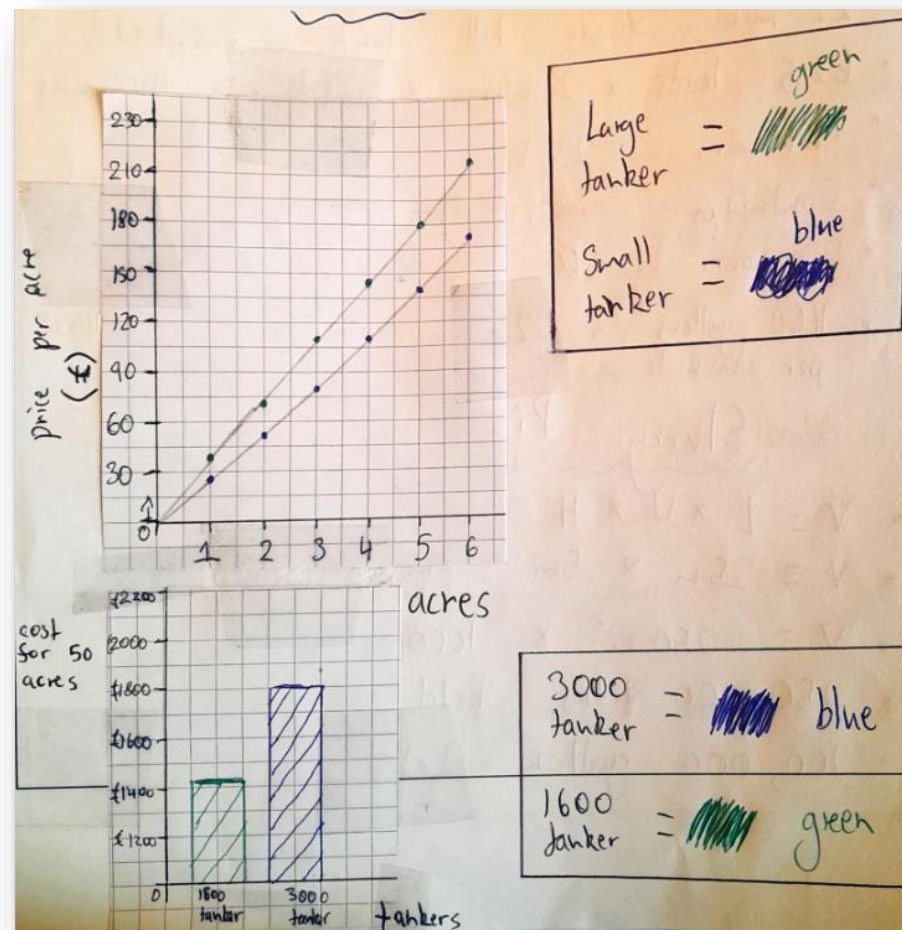 green
Large
tanker =
blue
Small
tanker =
price per acre
(£)
230
210
180
150
120
90
60
30
0
1 2 3 4 5 6
acres
cost
for 50
acres
£2200
£2000
£1800
£1600
£1400
£1200
0
tanker
3000
tanker
tankers
3000
tanker = blue
1600
tanker = green